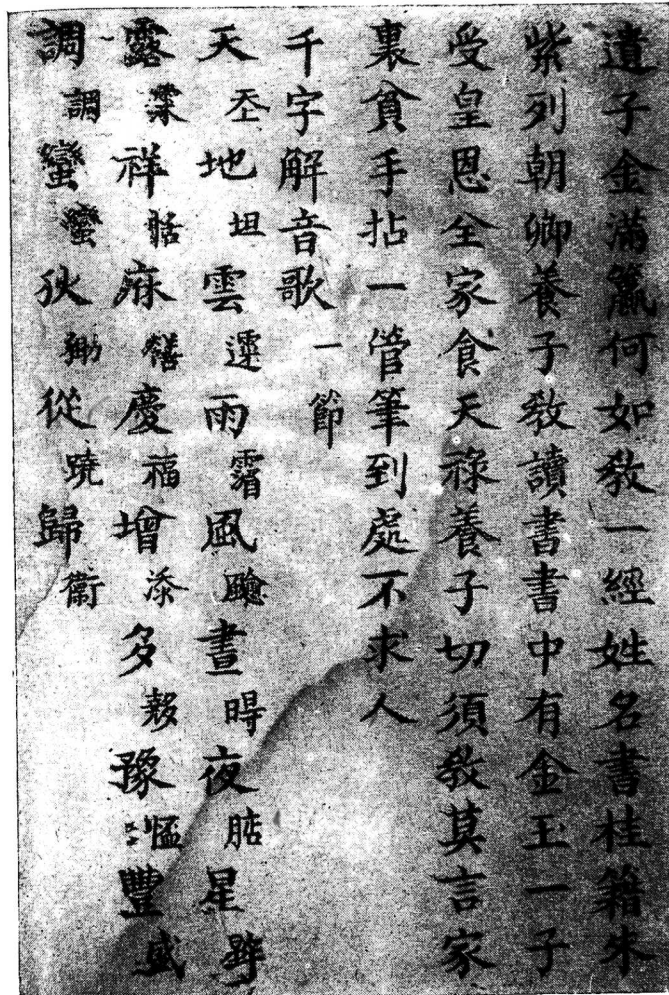 遺子金滿籯何如教一經姓名書桂籍朱
紫列朝卿養子教讀書書中有金玉一子
受皇恩全家食天祿養子切須教莫言家
裏貧手拈一管筆到處不求人
千字解音歌一節
天𡗶地坦雲𩄲雨𩅹風𩙋晝𣈜夜𣎀星
露祥庥慶福增添多豫豐盛
調調蠻蠻狄從蹺歸衛